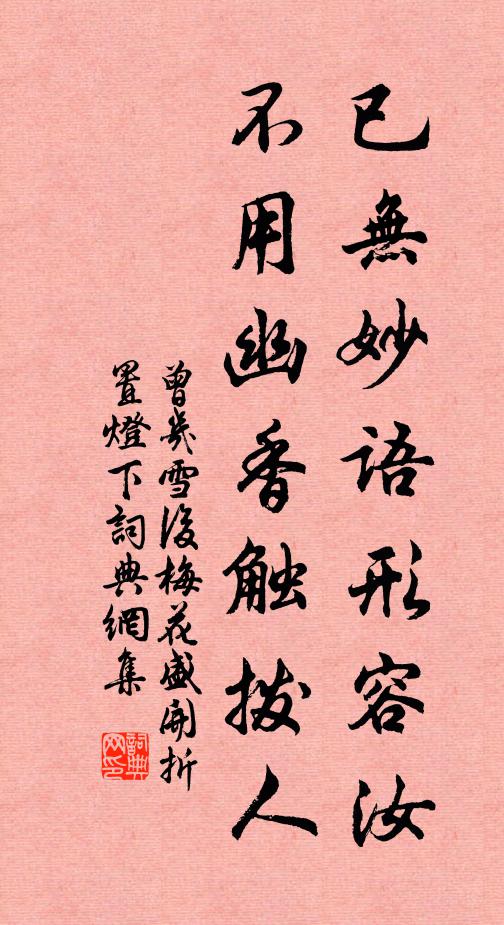 已無妙語形容汝
不用幽香触撥人
曾幾雪後梅花盛開折
置燈下詞典網集
詞典
网印